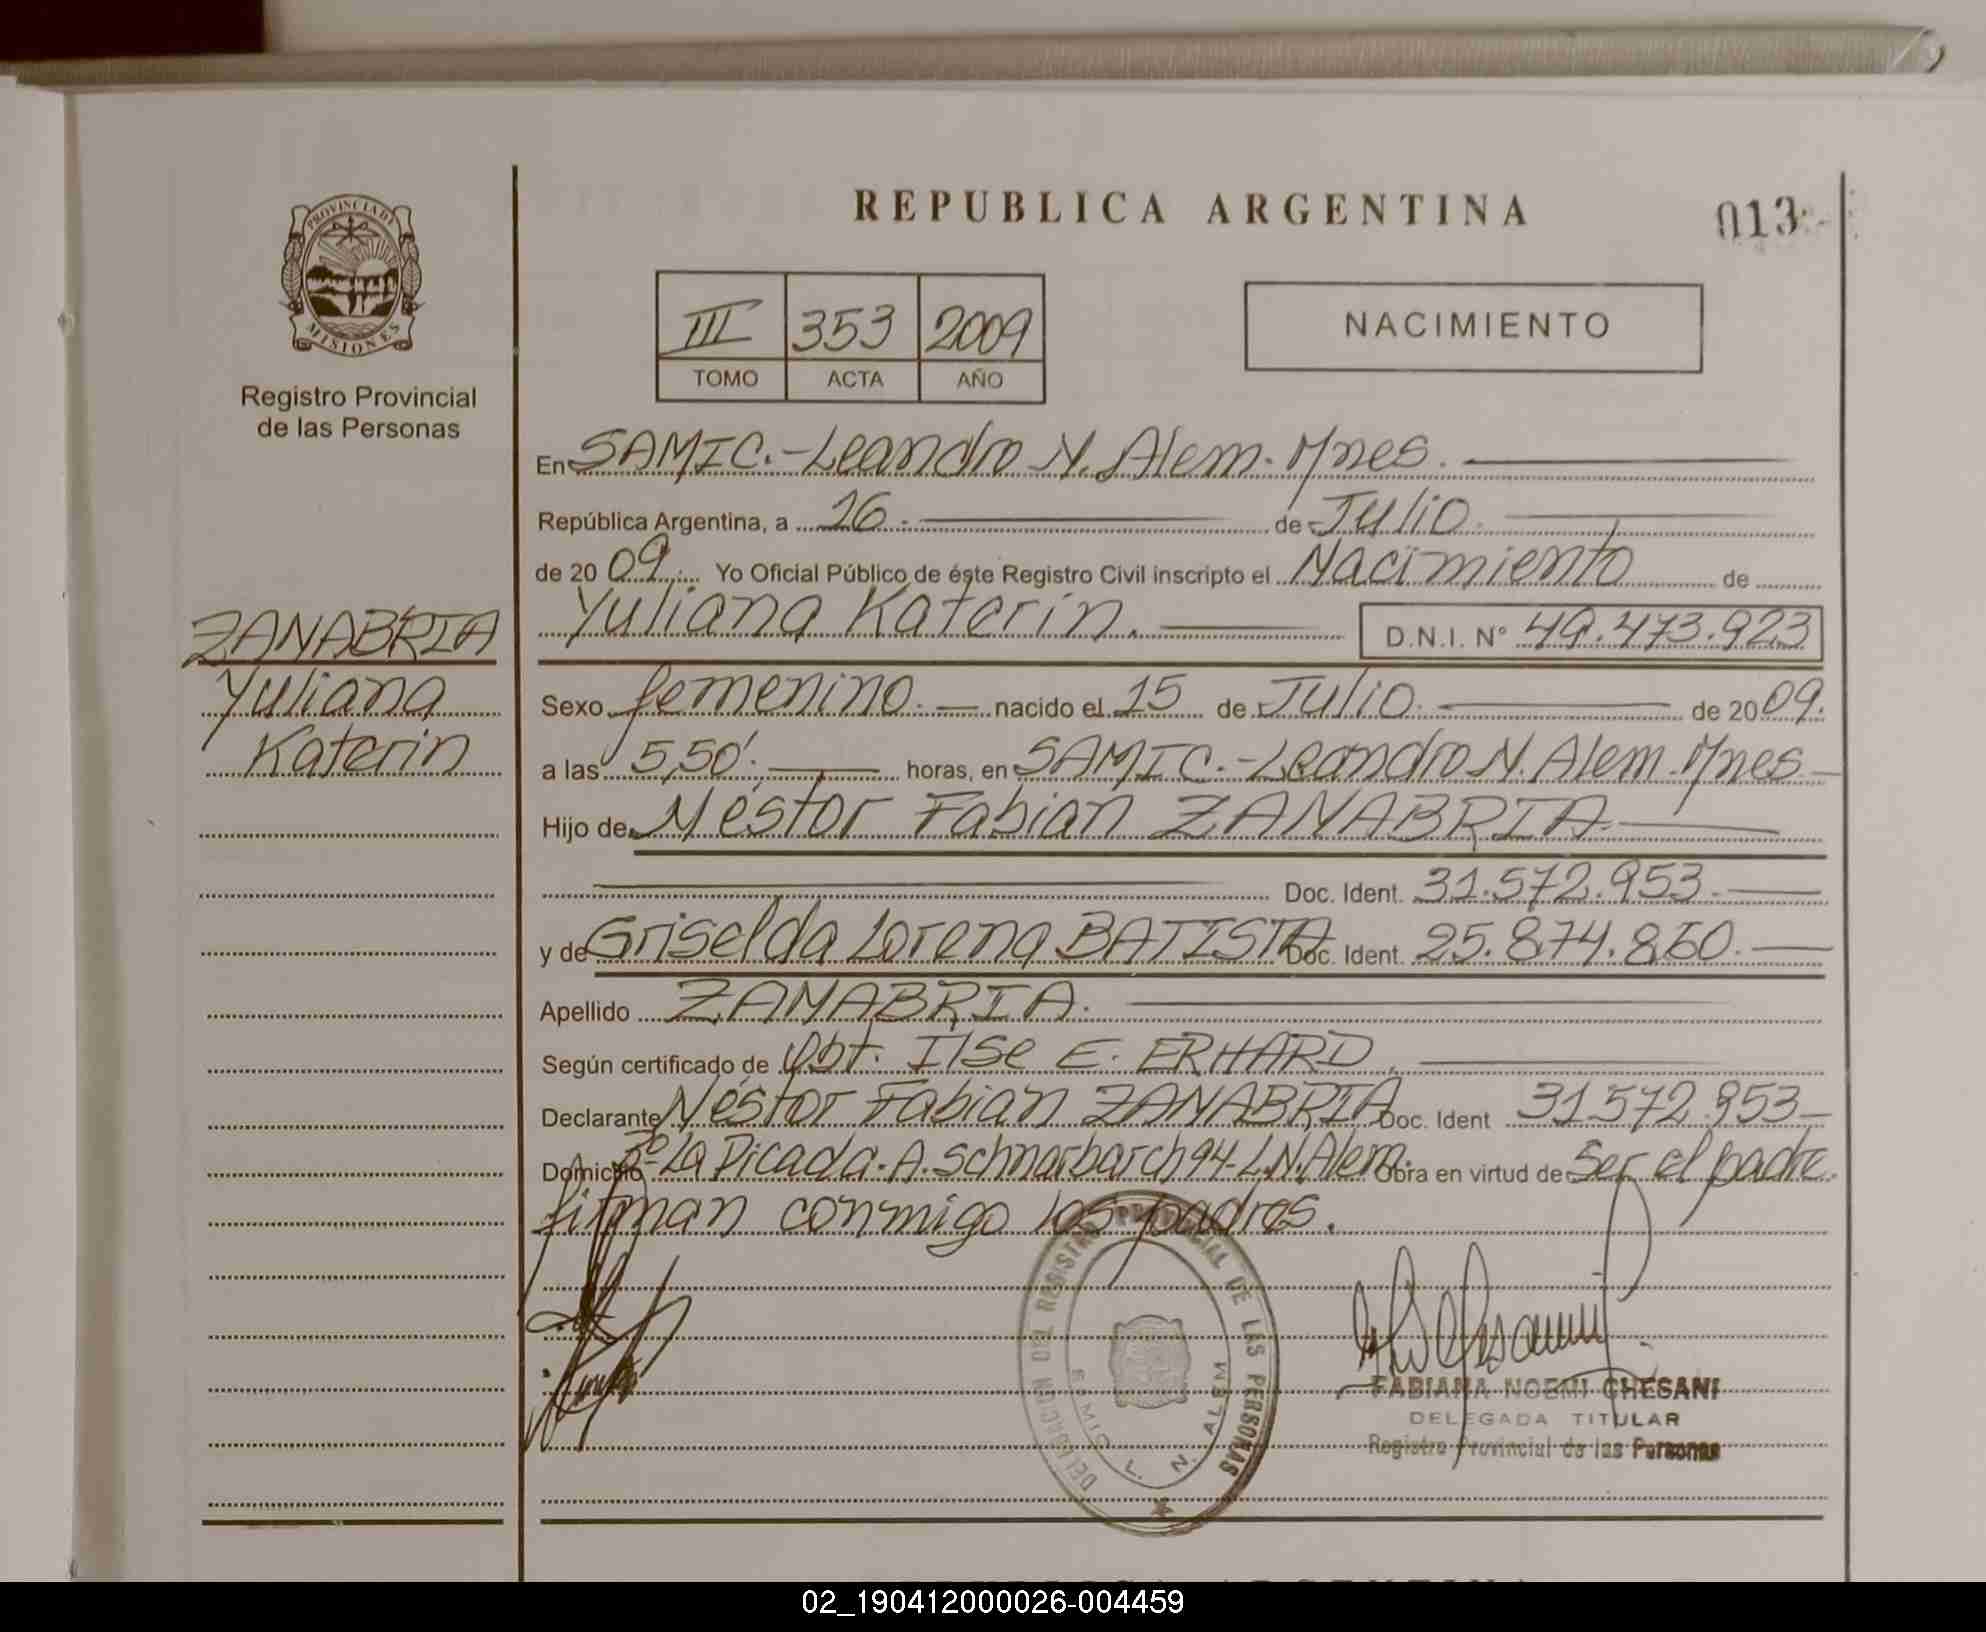 PROVINCIA DE
MISIONES
Registro Provincial
de las Personas
ZANABRIA
Yuliana
Katerin
REPUBLICA ARGENTINA
013
III 353 2009
TOMO ACTA AÑO
NACIMIENTO
En SAMIC.-Leandro N. Alem. Mnes.
República Argentina, a 16. de Julio.
de 20 09. Yo Oficial Público de éste Registro Civil inscripto el Nacimiento de
Yuliana Katerin. D.N.I. N° 49.473.923
Sexo femenino. nacido el 15 de Julio. de 20 09.
a las 5,50'. horas, en SAMIC.-Leandro N. Alem. Mnes
Hijo de Néstor Fabian ZANABRIA.
Doc. Ident. 31.572.953.
y de Griselda Lorena BATISTA Doc. Ident. 25.874.860.
Apellido ZANABRIA.
Según certificado de Obt. Ilse E. ERHARD.
Declarante Néstor Fabian ZANABRIA Doc. Ident 31572.953
Domicilio Bº La Picada. A. Schnarbarch 94-L.N.Alem. Obra en virtud de Ser el padre.
firman conmigo los padres.
DELEGACION DEL REGISTRO PROVINCIAL DE LAS PERSONAS
SAMIC L. N. ALEM
FABIANA NOEMI CHESANI
DELEGADA TITULAR
Registro Provincial de las Personas
02_190412000026-004459